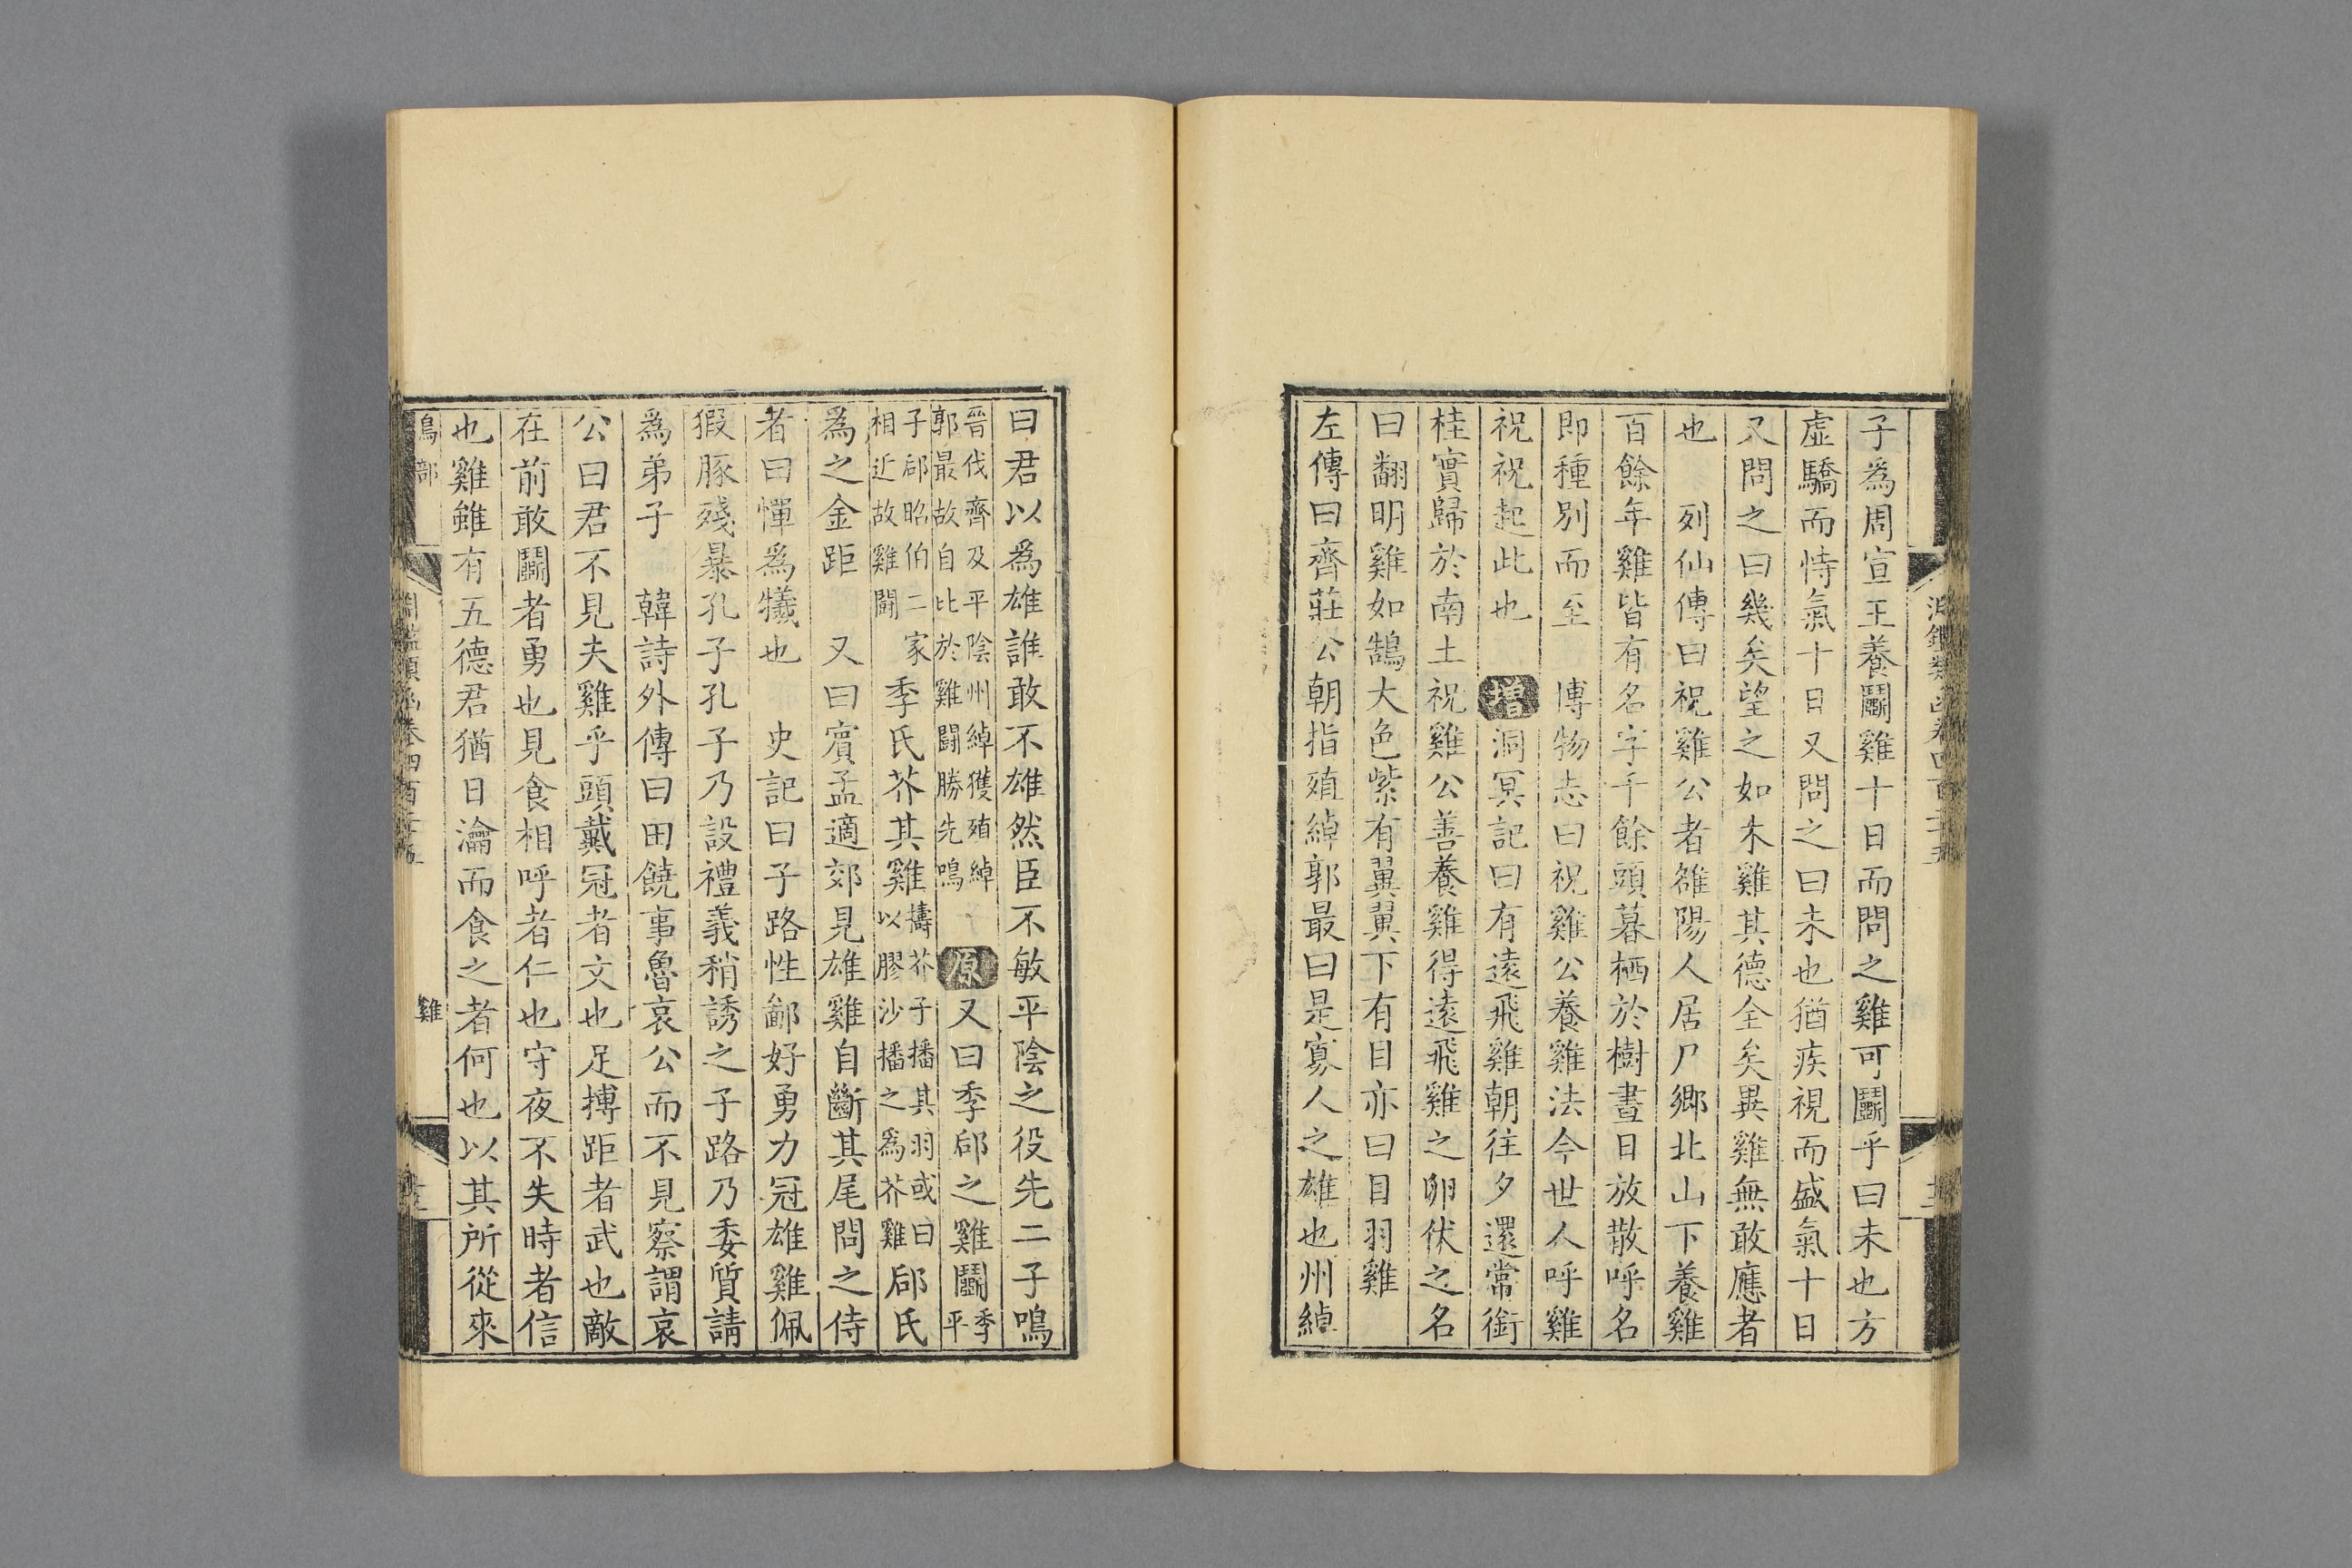 子爲周宣王養鬭雞十日而問之雞可鬭乎曰未也方
虛驕而恃氣十日又問之曰未也猶疾視而盛氣十日
又問之曰幾矣望之如木雞其德全矣異雞無敢應者
也　列仙傳曰祝雞公者雒陽人居尸鄉北山下養雞
百餘年雞皆有名字千餘頭暮栖於樹晝日放散呼名
即種別而至　博物志曰祝雞公養雞法今世人呼雞
祝祝起此也　增　洞冥記曰有遠飛雞朝往夕還常銜
桂實歸於南土祝雞公善養雞得遠飛雞之卵伏之名
曰翻明雞如鵠大色紫有翼翼下有目亦曰目羽雞
左傳曰齊莊公朝指殖綽郭最曰是寡人之雄也州綽
曰君以爲雄誰敢不雄然臣不敏平陰之役先二子鳴
晉伐齊及平陰州綽獲殖綽
郭最故自比於雞鬪勝先鳴
原　又曰季郈之雞鬭季
平
子郈昭伯二家
相近故雞鬪
季氏芥其雞
擣芥子播其羽或曰
以膠沙播之爲芥雞
郈氏
爲之金距　又曰賓孟適郊見雄雞自斷其尾問之侍
者曰憚爲犧也　史記曰子路性鄙好勇力冠雄雞佩
猳豚殘暴孔子孔子乃設禮義稍誘之子路乃委質請
爲弟子　韓詩外傳曰田饒事魯哀公而不見察謂哀
公曰君不見夫雞乎頭戴冠者文也足搏距者武也敵
在前敢鬭者勇也見食相呼者仁也守夜不失時者信
也雞雖有五德君猶日瀹而食之者何也以其所從來
鳥部　淵鑑類函卷四百二十五　雞